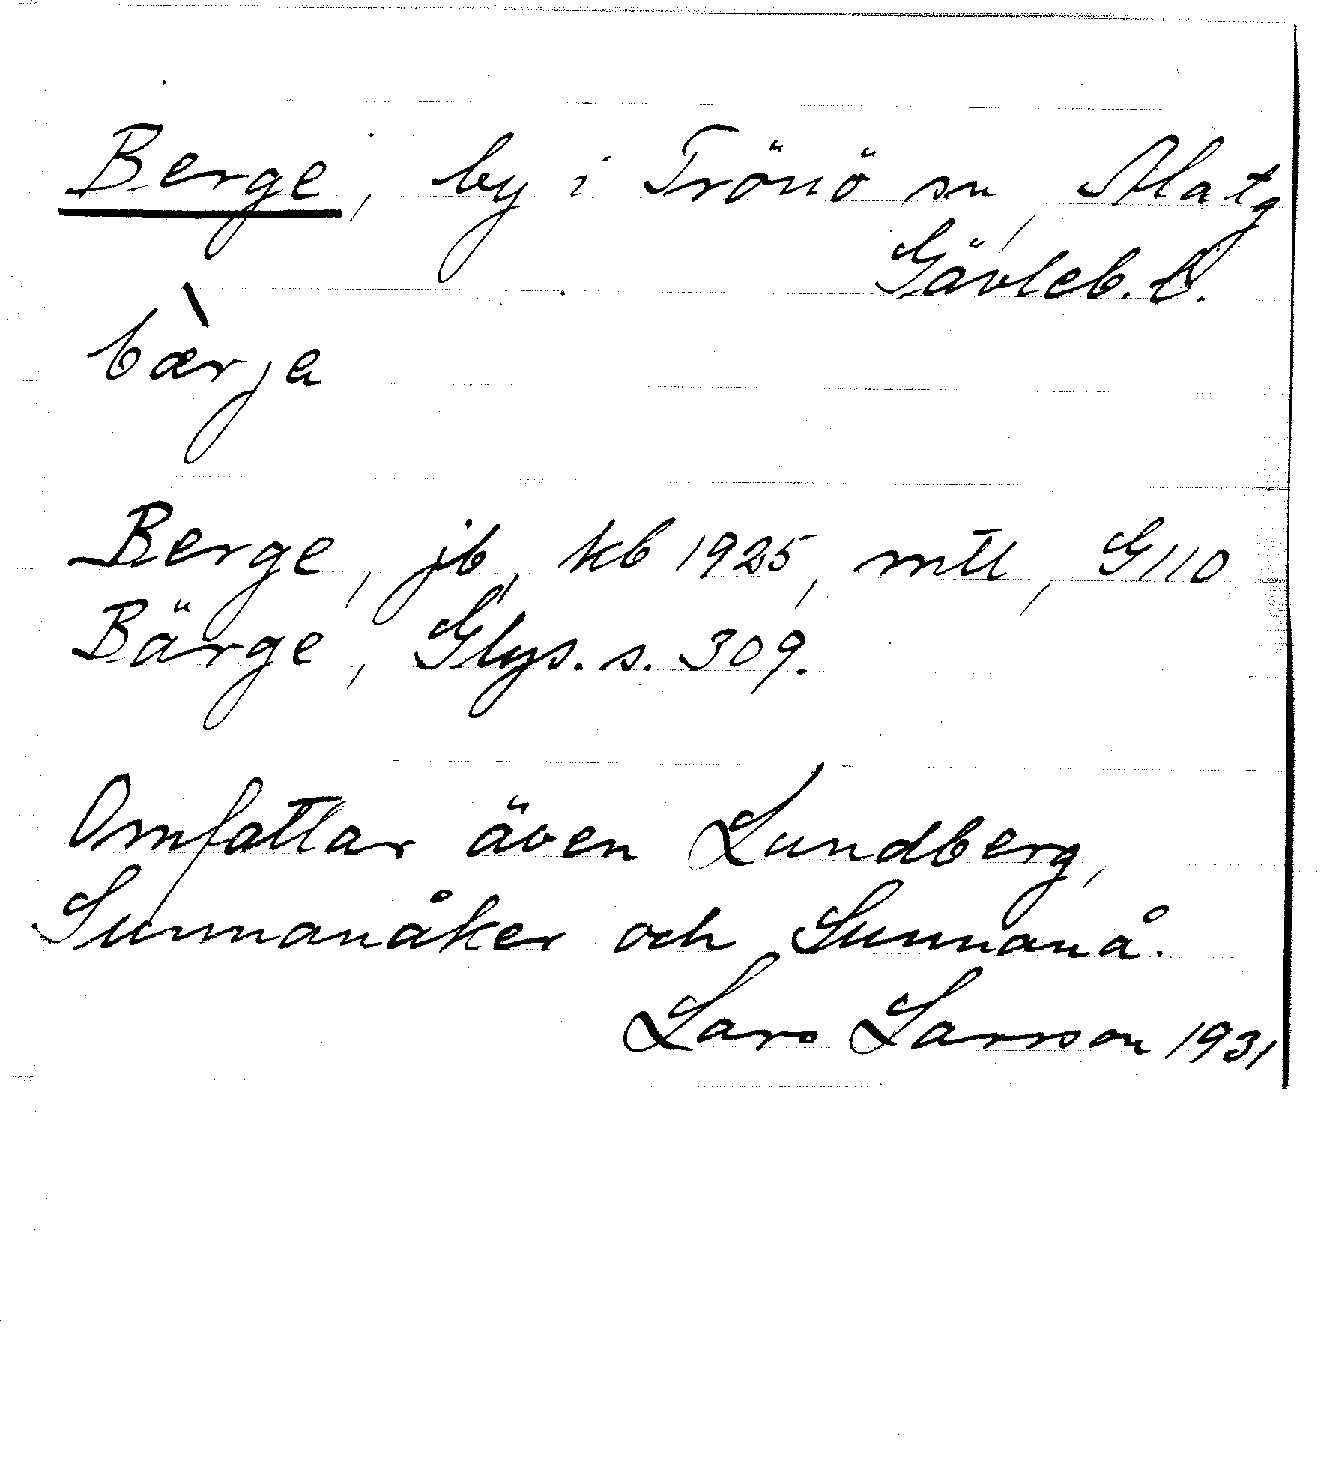 Berge, by i Trönö sn, Ala tg
Gävleb. l.
bærja
Berge, jb, kb 1925, mtl, G110
Bärge, Glys. s. 309.
Omfattar även Lundberg,
Sunnanåker och Sunnanå.
Lars Larsson 1931